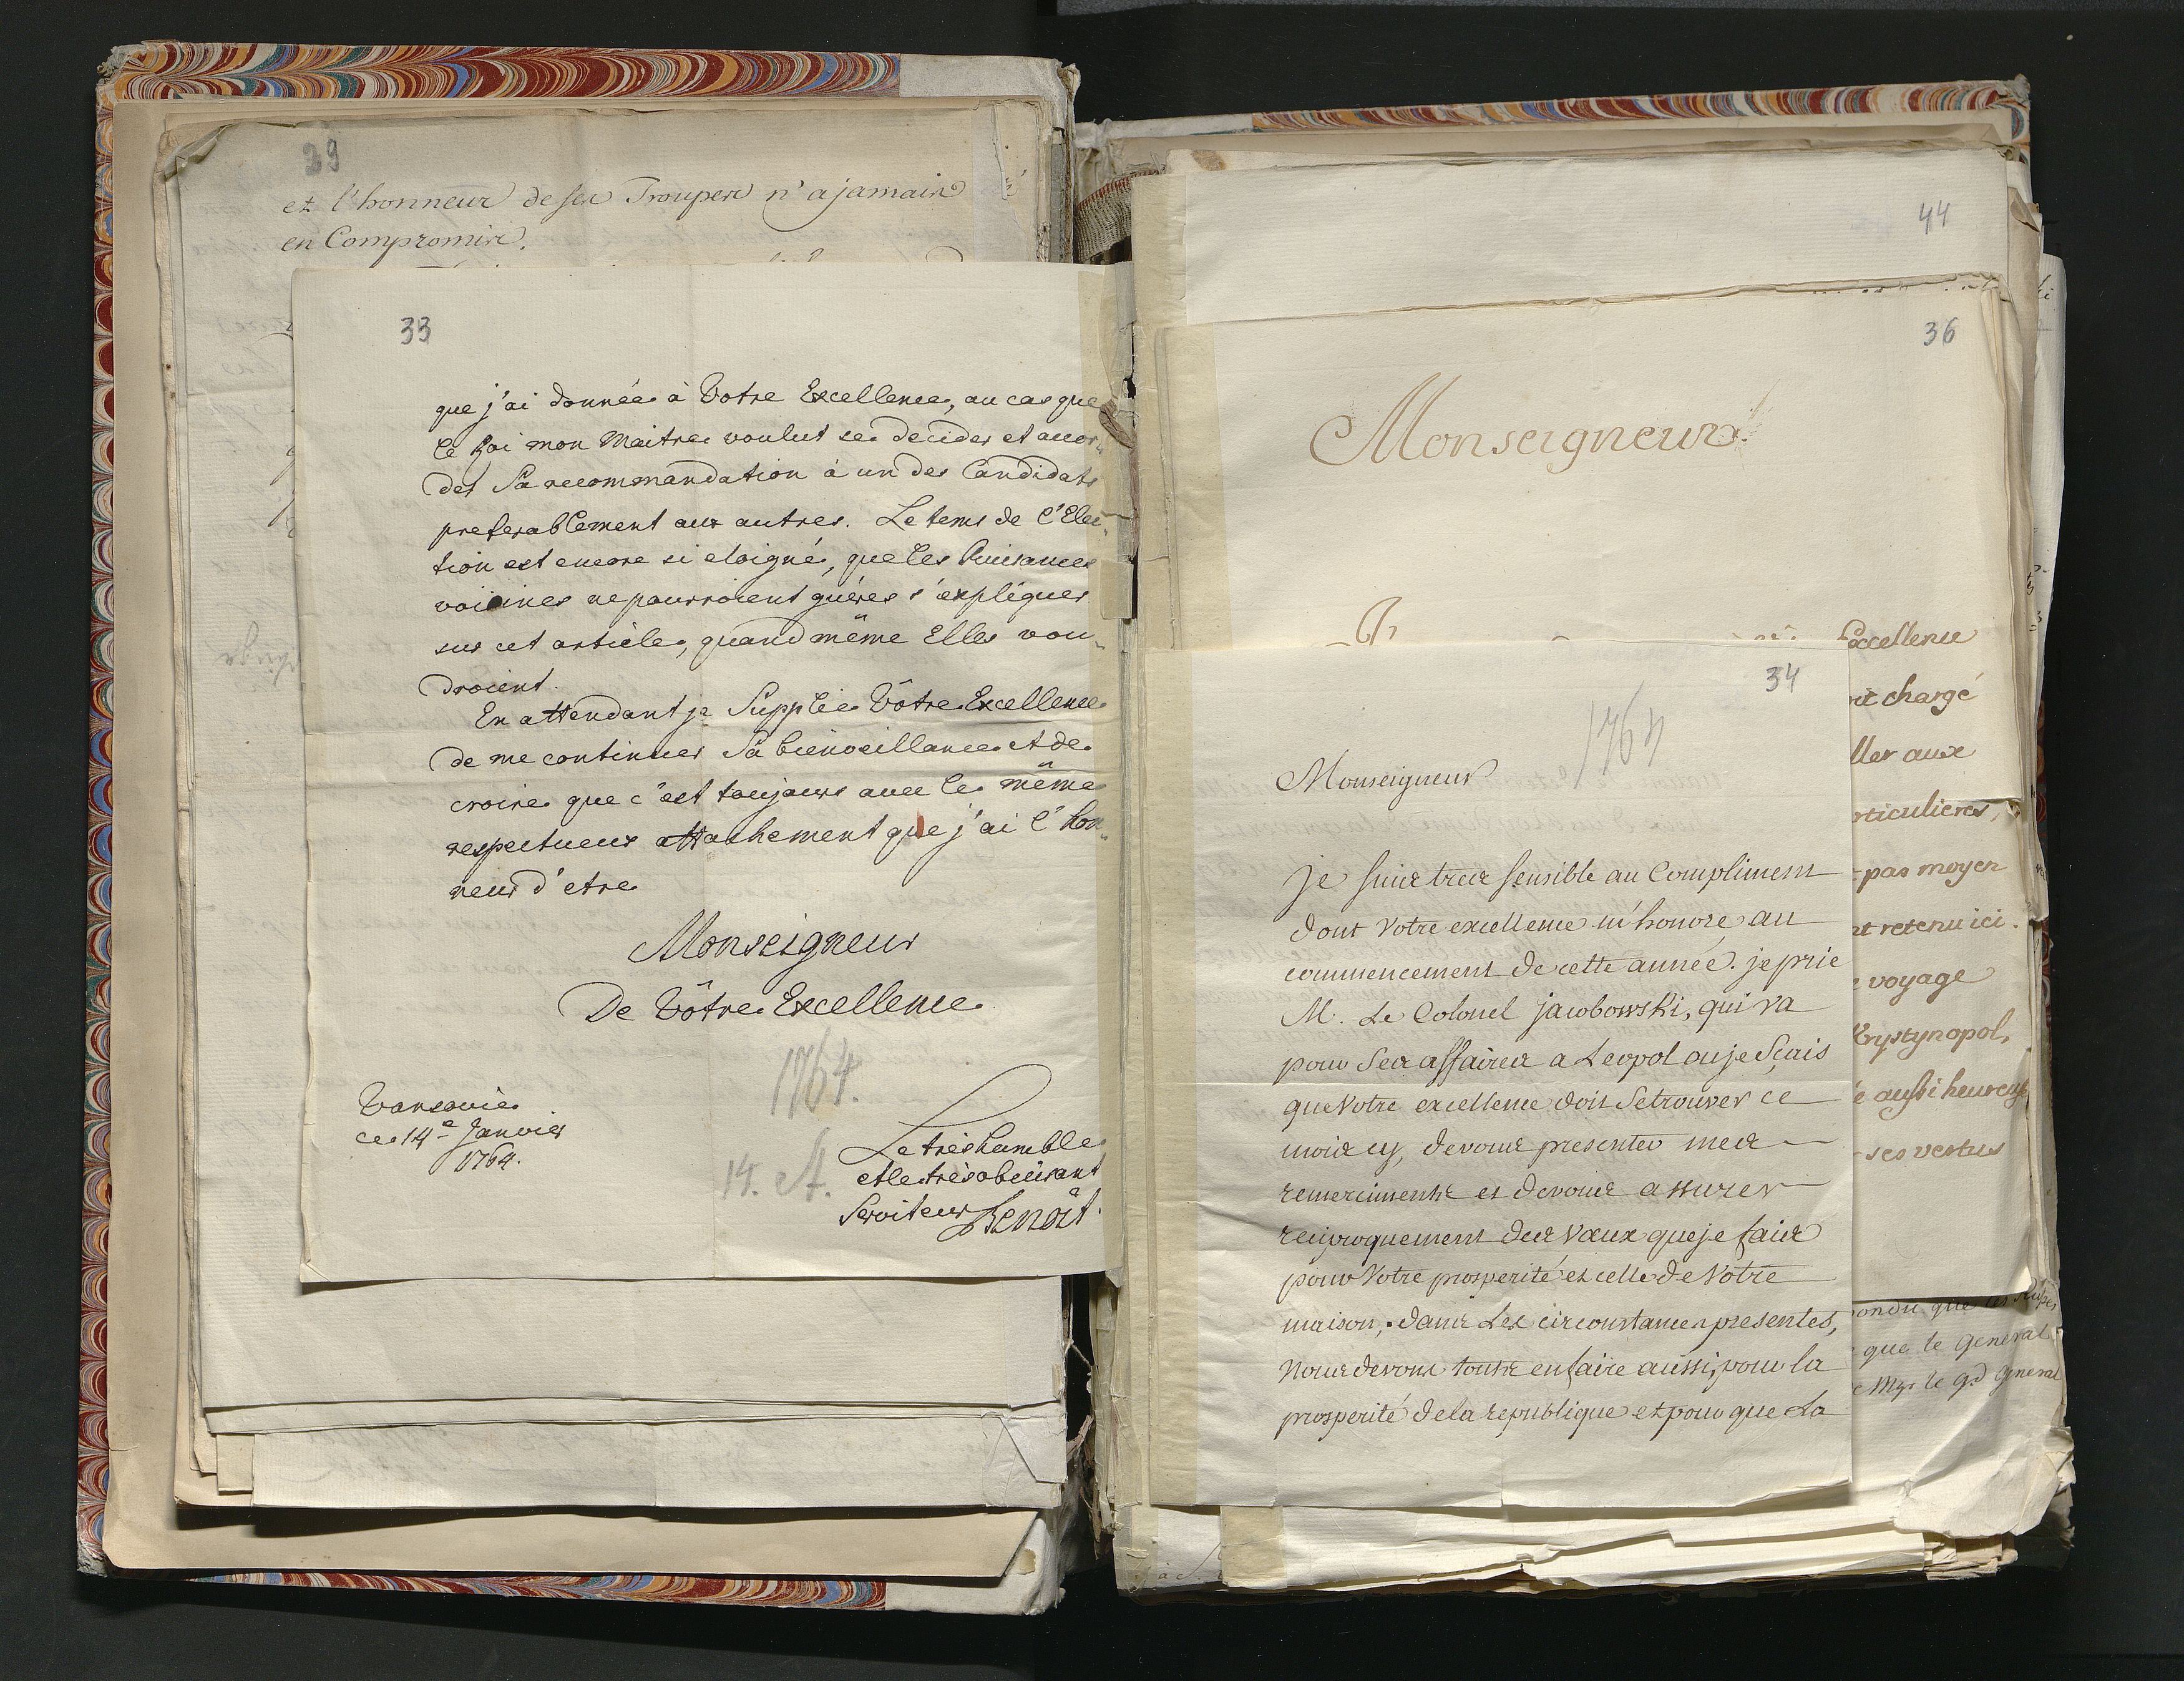 39
et l'honneur de ses Troupes n'a jamais
en Compromis.
33
que j'ai donnée à Vôtre Excellence, au cas que
le Roi mon Maitre voulut se decider et accor-
der Sa recommandation à un des Candidats
preferablement aux autres. Le tems de l'Elec-
tion est encore si eloigné, que les Puissances
voisines ne pourroient guéres s'expliquer
sur cet article, quand même Elles vou-
droient.
En attendant je Supplie Vôtre Excellence
de me continuer Sa bienveillance et de
croire que c'est toujours avec le même
respectueux attachement que j'ai l'hon-
neur d'etre
Monseigneur
De Vôtre Excellence
1764.
Varsovie
ce 14e Janvier
1764.
14. A.
Le très humble
et le très obeissant
Serviteur Benoît.
44
36
Monseigneur
Excellence
chargé
aller aux
particulieres,
pas moyen
retenu ici.
voyage
Krystynopol,
aussi heureux
ses vertus
que les
que le General
Mgr le gd General
34
1764
Monseigneur
je suis tres sensible au Compliment
dont Votre excellence m'honore au
commencement de cette année. je prie
M. Le Colonel jacobowski, qui va
pour Ses affaires a Leopol ou je Sçais
que Votre excellence doit Se trouver ce
mois cy, de vous presenter mes
remerciments et de vous assurer
reciproquement des Vœux que je fais
pour Votre prosperité et celle de Votre
maison, dans Les circonstances presentes,
Nous devons touts en faire aussi, pour la
prosperité de la republique et pour que La